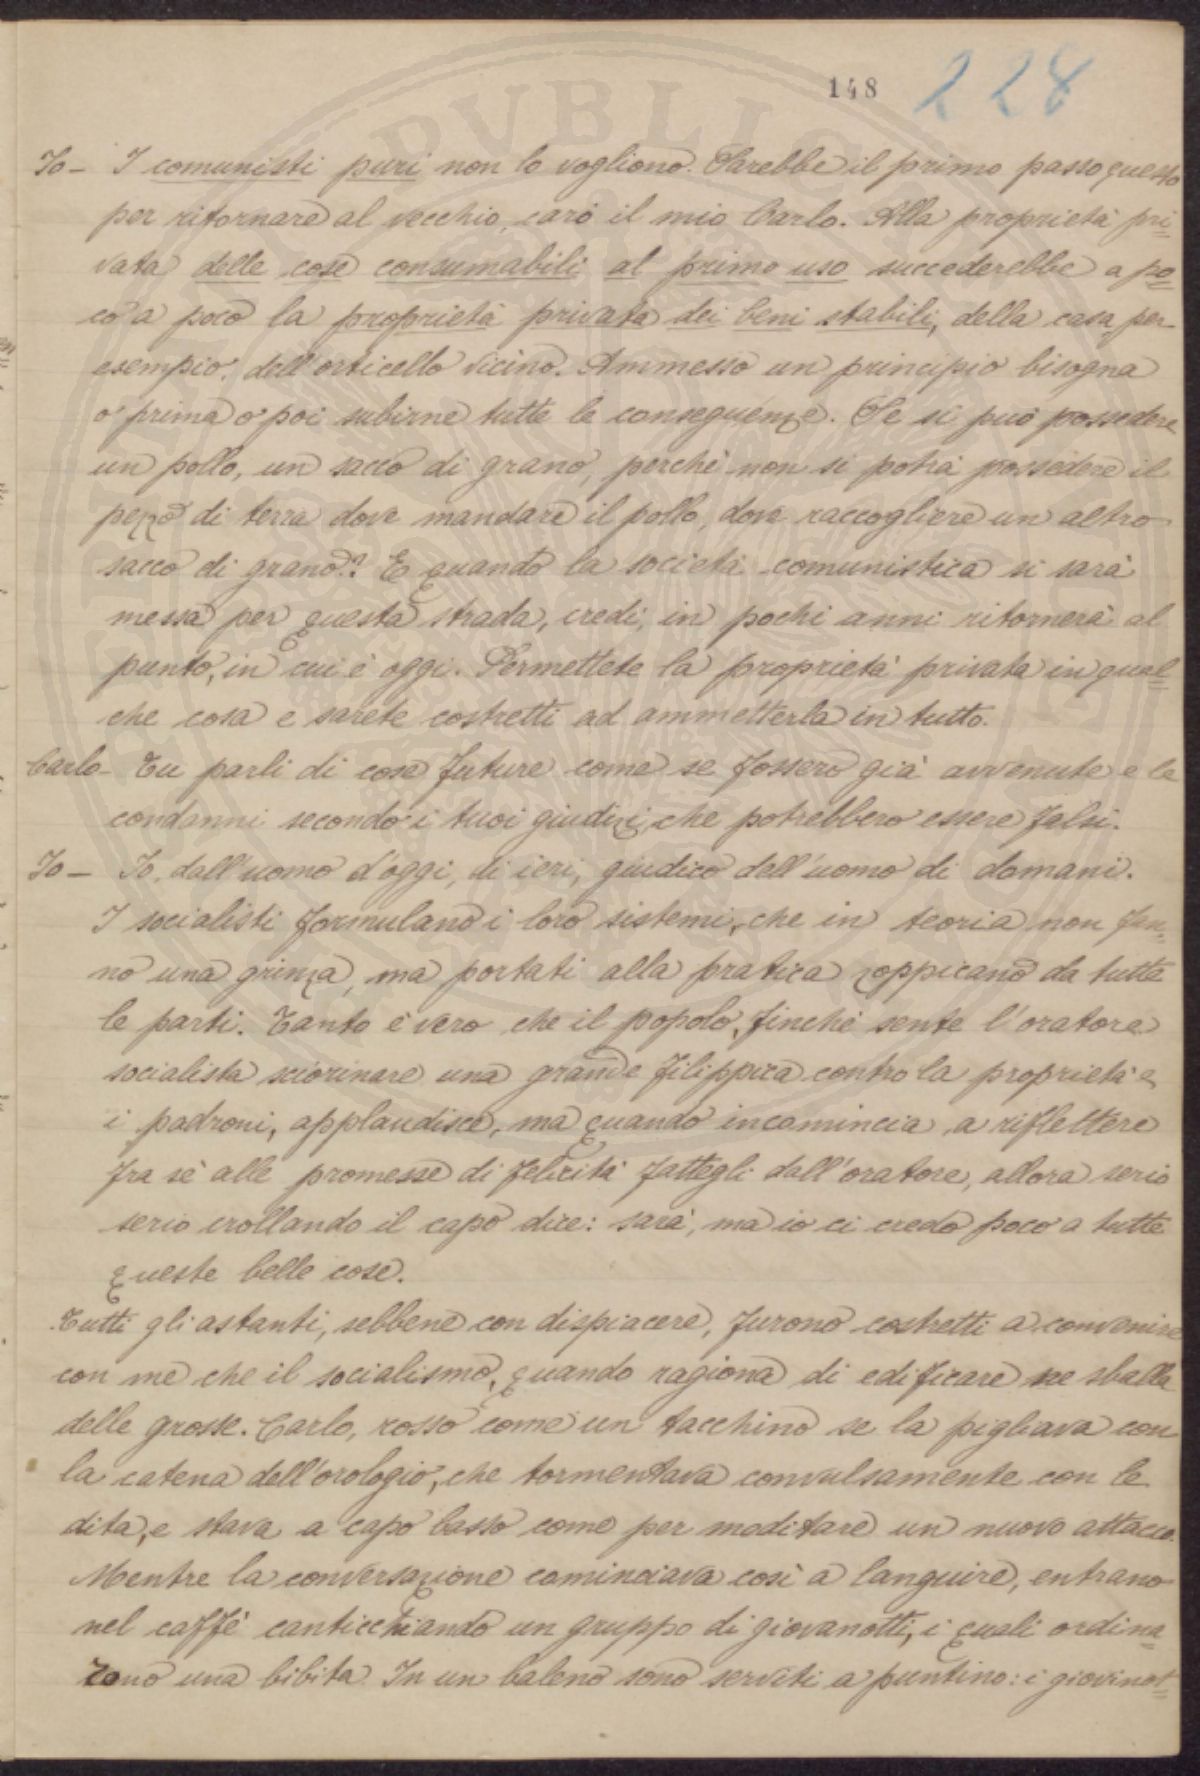 148 228
Io – I comunisti puri non lo vogliono. Sarebbe il primo passo questo
per ritornare al vecchio, caro il mio Carlo. Alla proprietà pri=
vata delle cose consumabili al primo uso succederebbe a po=
co a poco la proprietà privata dei beni stabili, della casa per
esempio, dell'orticello vicino. Ammesso un principio bisogna
o prima o poi subirne tutte le conseguenze. Se si può possedere
un pollo, un sacco di grano, perchè non si potrà possedere il
pezzo di terra dove mandare il pollo, dove raccogliere un altro
sacco di grano? E quando la società comunistica si sarà
messa per questa strada, credi, in pochi anni ritornerà al
punto, in cui è oggi. Permettete la proprietà privata in qual=
che cosa e sarete costretti ad ammetterla in tutto.
Carlo – Tu parli di cose future come se fossero già avvenute e le
condanni secondo i tuoi giudizi, che potrebbero essere falsi.
Io – Io, dall'uomo d'oggi, di ieri, giudico dell'uomo di domani.
I socialisti formulano i loro sistemi, che in teoria non fan=
no una grinza, ma portati alla pratica zoppicano da tutte
le parti. Tanto è vero che il popolo, finchè sente l'oratore
socialista sciorinare una grande filippica contro la proprietà e
i padroni, applaudisce, ma quando incomincia a riflettere
fra sè alle promesse di felicità fattegli dall'oratore, allora serio
serio crollando il capo dice: sarà, ma io ci credo poco a tutte
queste belle cose.
Tutti gli astanti, sebbene con dispiacere, furono costretti a convenire
con me che il socialismo, quando ragiona di edificare ne sballa
delle grosse. Carlo, rosso come un tacchino se la pigliava con
la catena dell'orologio, che tormentava convulsamente con le
dita, e stava a capo basso come per meditare un nuovo attacco.
Mentre la conversazione cominciava così a languire, entrano
nel caffè canticchiando un gruppo di giovanotti, i quali ordina=
rono una bibita. In un baleno sono serviti a puntino: i giovinot=